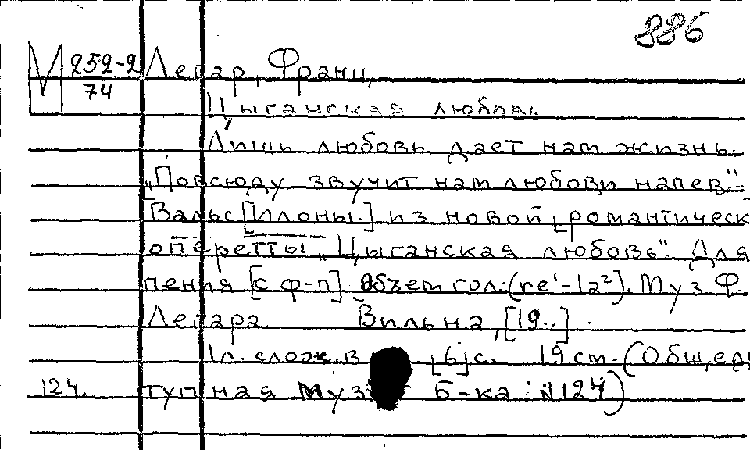 886
М 252-2 Легар, Франц.
74
Цыганская любовь.
Лишь любовь дает нам жизнь.
„Повсюду звучит нам любови напев"=
Вальс [Илоны.] из новой [романтическ
оперетты „Цыганская любовь". Для
пения [с ф-п]. Объем гол. (re¹-la²). Муз. Ф.
Легара. Вильна, [19..].
1 л. слож. в [6] с. 19 ст. (Общед
124. тупная Муз б-ка: №124)